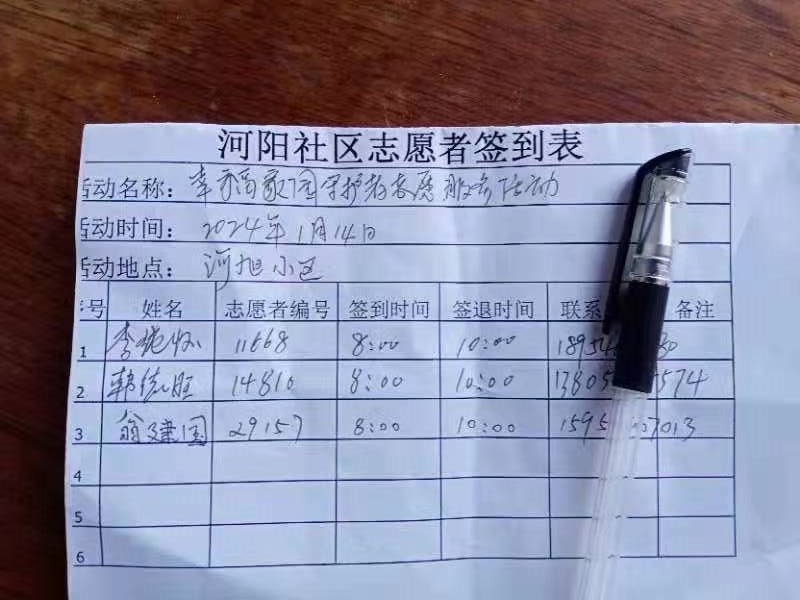 河阳社区志愿者签到表
活动名称：幸福家园守护者志愿服务活动
活动时间：2024年1月14日
活动地点：河旭小区
序号 姓名 志愿者编号 签到时间 签退时间 联系 备注
1 李 11668 8:00 10:00 18954 80
2 韩德旺 14810 8:00 10:00 13805 574
3 翁建国 29157 8:00 10:00 1595 7013
4
5
6